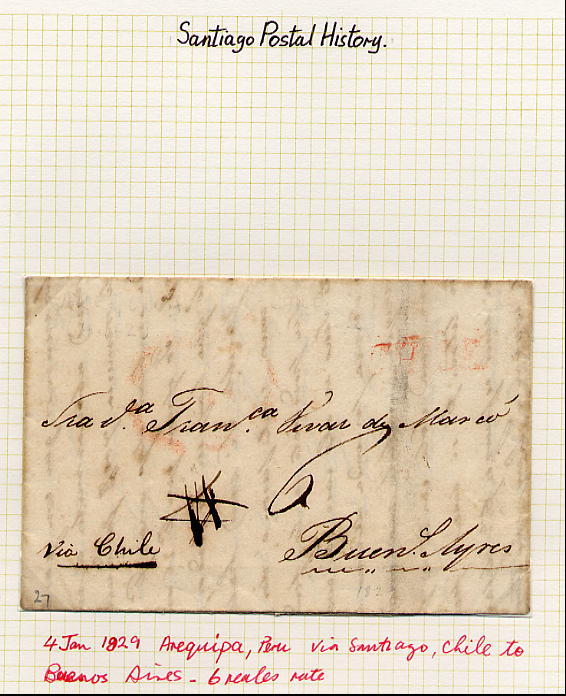 Santiago Postal History.
Sra d.ª Fran.ca Vivar de Marcó
6
Via Chile
Buen.s Ayres
27
4 Jan 1829 Arequipa, Peru via Santiago, Chile to
Buenos Aires - 6 reales rate